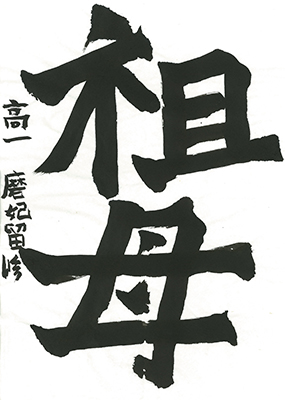 祖母
高一 磨妃留